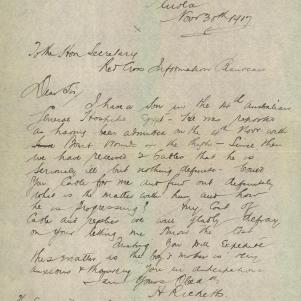 Nov 30th 1917
To the Hon Secretary
Red Cross Information Bureau
Dear Sir,
I have a son in the 14th Australian
General Hospital Egypt - He was reported
as having been admitted on the 4th Nov with
Wounds in the thigh - Since then
we have received 2 Cables that he is
Seriously ill but nothing definite - Could
You Cable for me and find out definitely
what is the matter with him and how
he is progressing? Any Cost of
Cable and replies we will gladly defray
on your letting me know the Cost
Trusting You Will Expedite
this matter as the boy's mother is very
anxious & thanking You in anticipation
I am Yours
H Ricketts